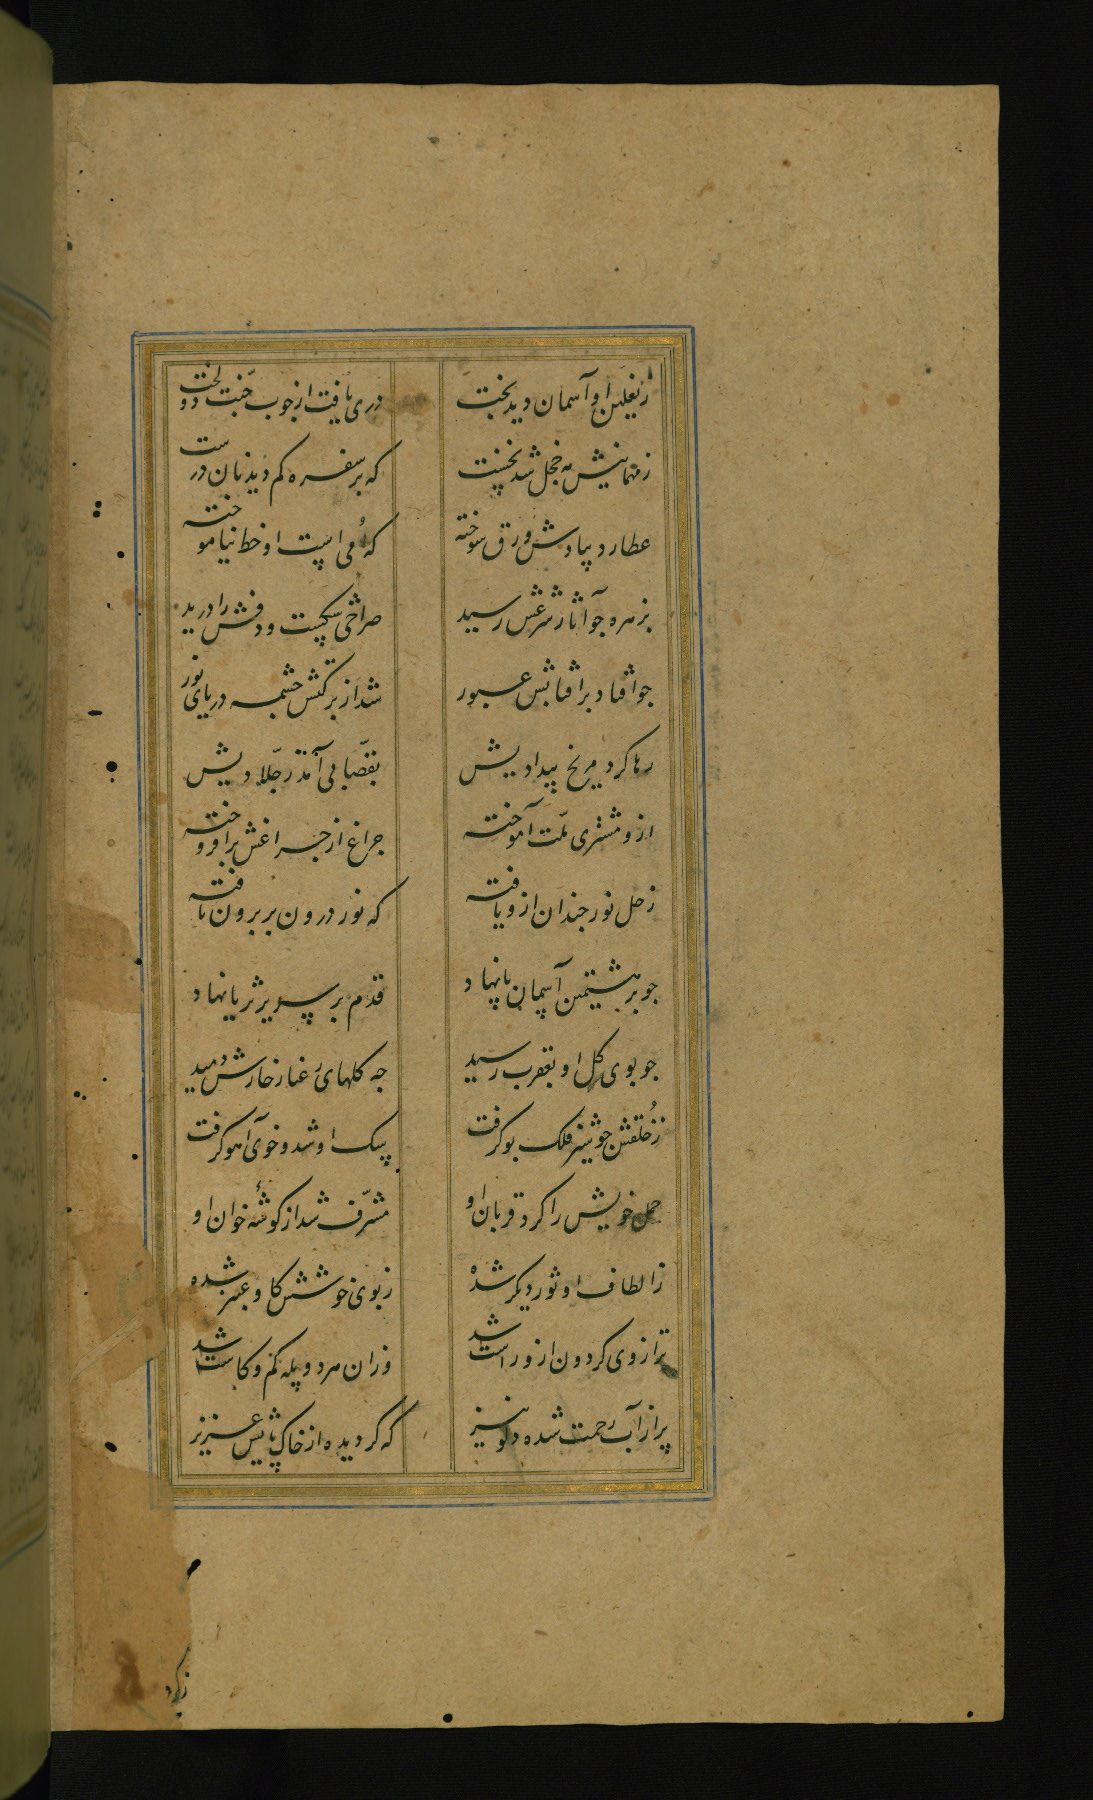 ز نعلین او آسمان دید بخت
دری یافت از چوب جنت دو لخت
ز مهمانیش مه خجل شد نخست
که بر سفره کم دید نان درست
عطارد بیادش ورق سوخته
که اُمی است او خط نیاموخته
بزهره چو آثار شرعش رسید
صراحی شکست و دفش را درید
چو افتاد بر آفتابش عبور
شد از برکتش چشمه دریای نور
رها کرد مریخ بیدادیش
بقصّابی آمد ز جلّادیش
ازو مشتری ملّت آموخته
چراغ از چراغش برافروخته
زحل نور چندان ازو یافته
که نور درون بر برون تافته
چو بر هشتمین آسمان پا نهاد
قدم بر سریر ثریا نهاد
چو بوی گل او بعقرب رسید
چه گلهای رعنا ز خارش دمید
ز خُلقش چو شیر فلک بو گرفت
سگ او شد و خوی آهو گرفت
حمل خویش را کرد قربان او
مشرّف شد از گوشهٔ خوان او
ز الطاف او ثور دیگر شده
ز بوی خوشش گاو عنبر شده
ترازوی گردون ازو راست شد
وزان هر دو پله کم و کاست شد
پر از آب رحمت شده دلو نیز
که گردیده از خاک پایش عزیز